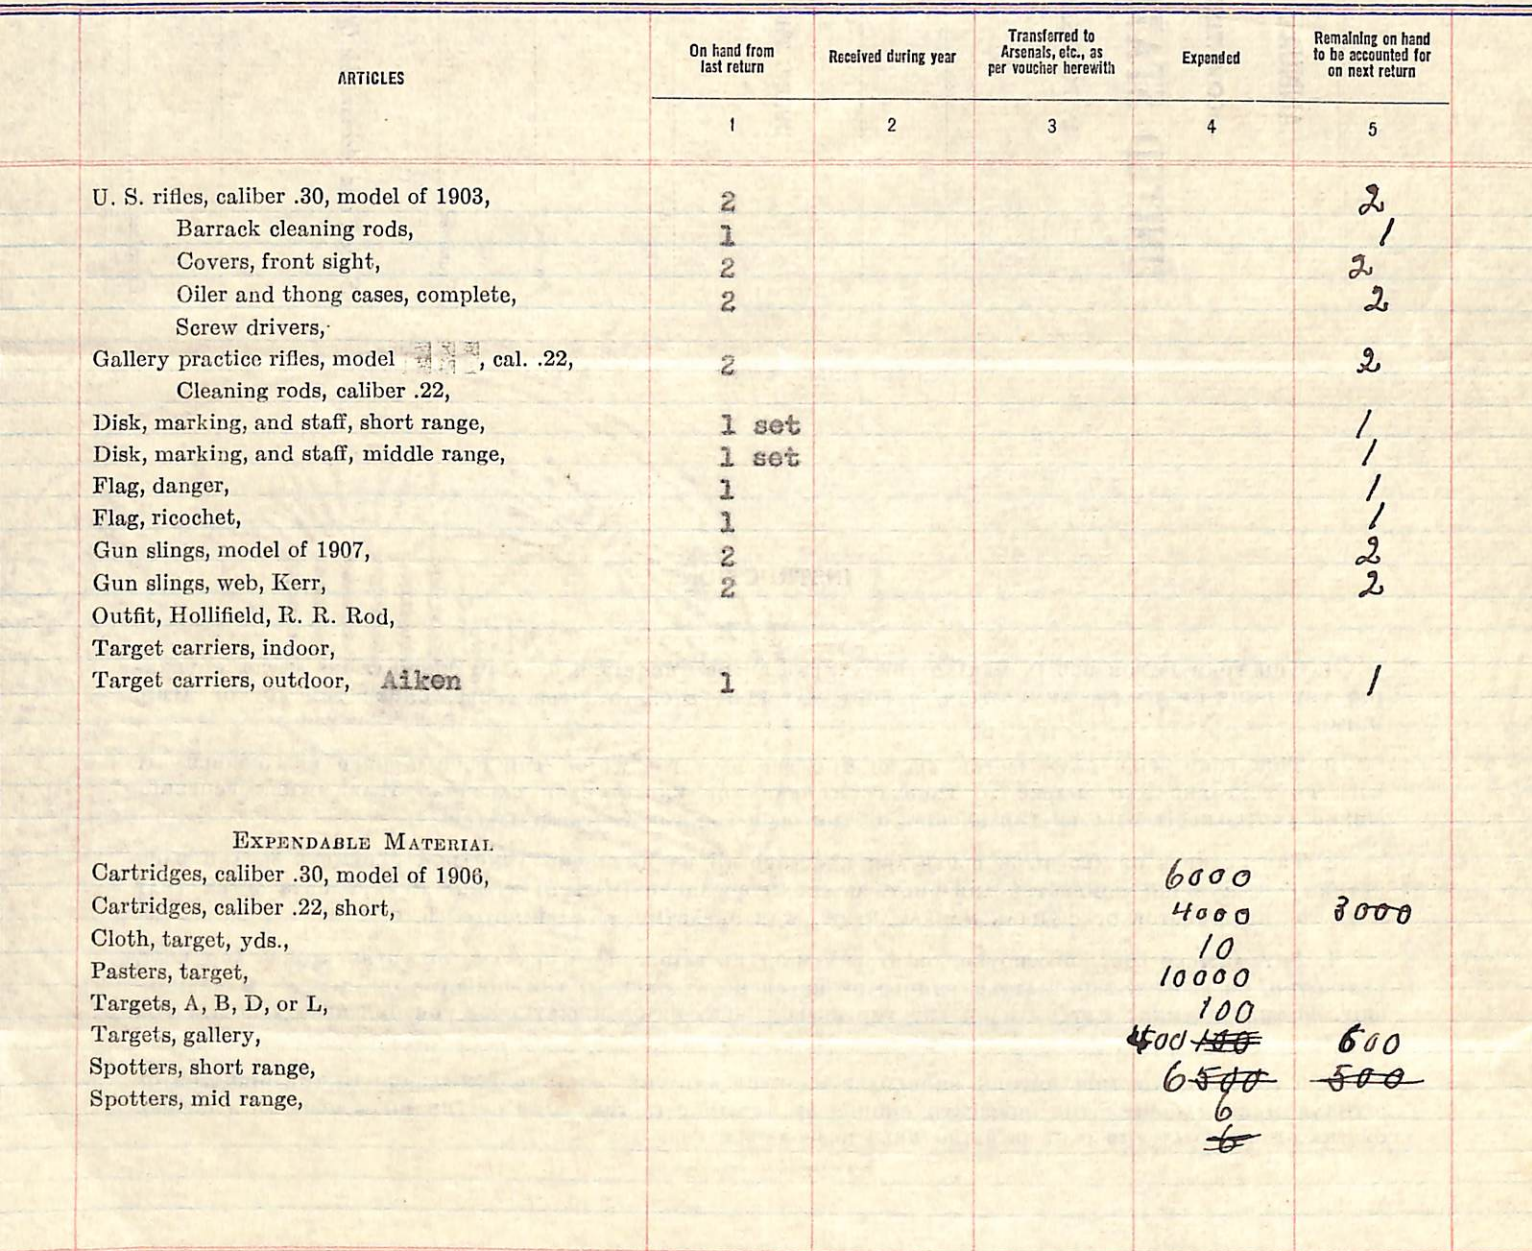 ARTICLES
On hand from
last return
Received during year
Transferred to
Arsenals, etc., as
per voucher herewith
Expended
Remaining on hand
to be accounted for
on next return
1 2 3 4 5
U. S. rifles, caliber .30, model of 1903, 2 2
Barrack cleaning rods, 1 1
Covers, front sight, 2 2
Oiler and thong cases, complete, 2 2
Screw drivers,
Gallery practice rifles, model , cal. .22, 2 2
Cleaning rods, caliber .22,
Disk, marking, and staff, short range, 1 set 1
Disk, marking, and staff, middle range, 1 set 1
Flag, danger, 1 1
Flag, ricochet, 1 1
Gun slings, model of 1907, 2 2
Gun slings, web, Kerr, 2 2
Outfit, Hollifield, R. R. Rod,
Target carriers, indoor,
Target carriers, outdoor, Aiken 1 1
EXPENDABLE MATERIAL
Cartridges, caliber .30, model of 1906, 6000
Cartridges, caliber .22, short, 4000 3000
Cloth, target, yds., 10
Pasters, target, 10000
Targets, A, B, D, or L, 100
Targets, gallery, 400 100 600
Spotters, short range, 6 500 500
Spotters, mid range, 6
6